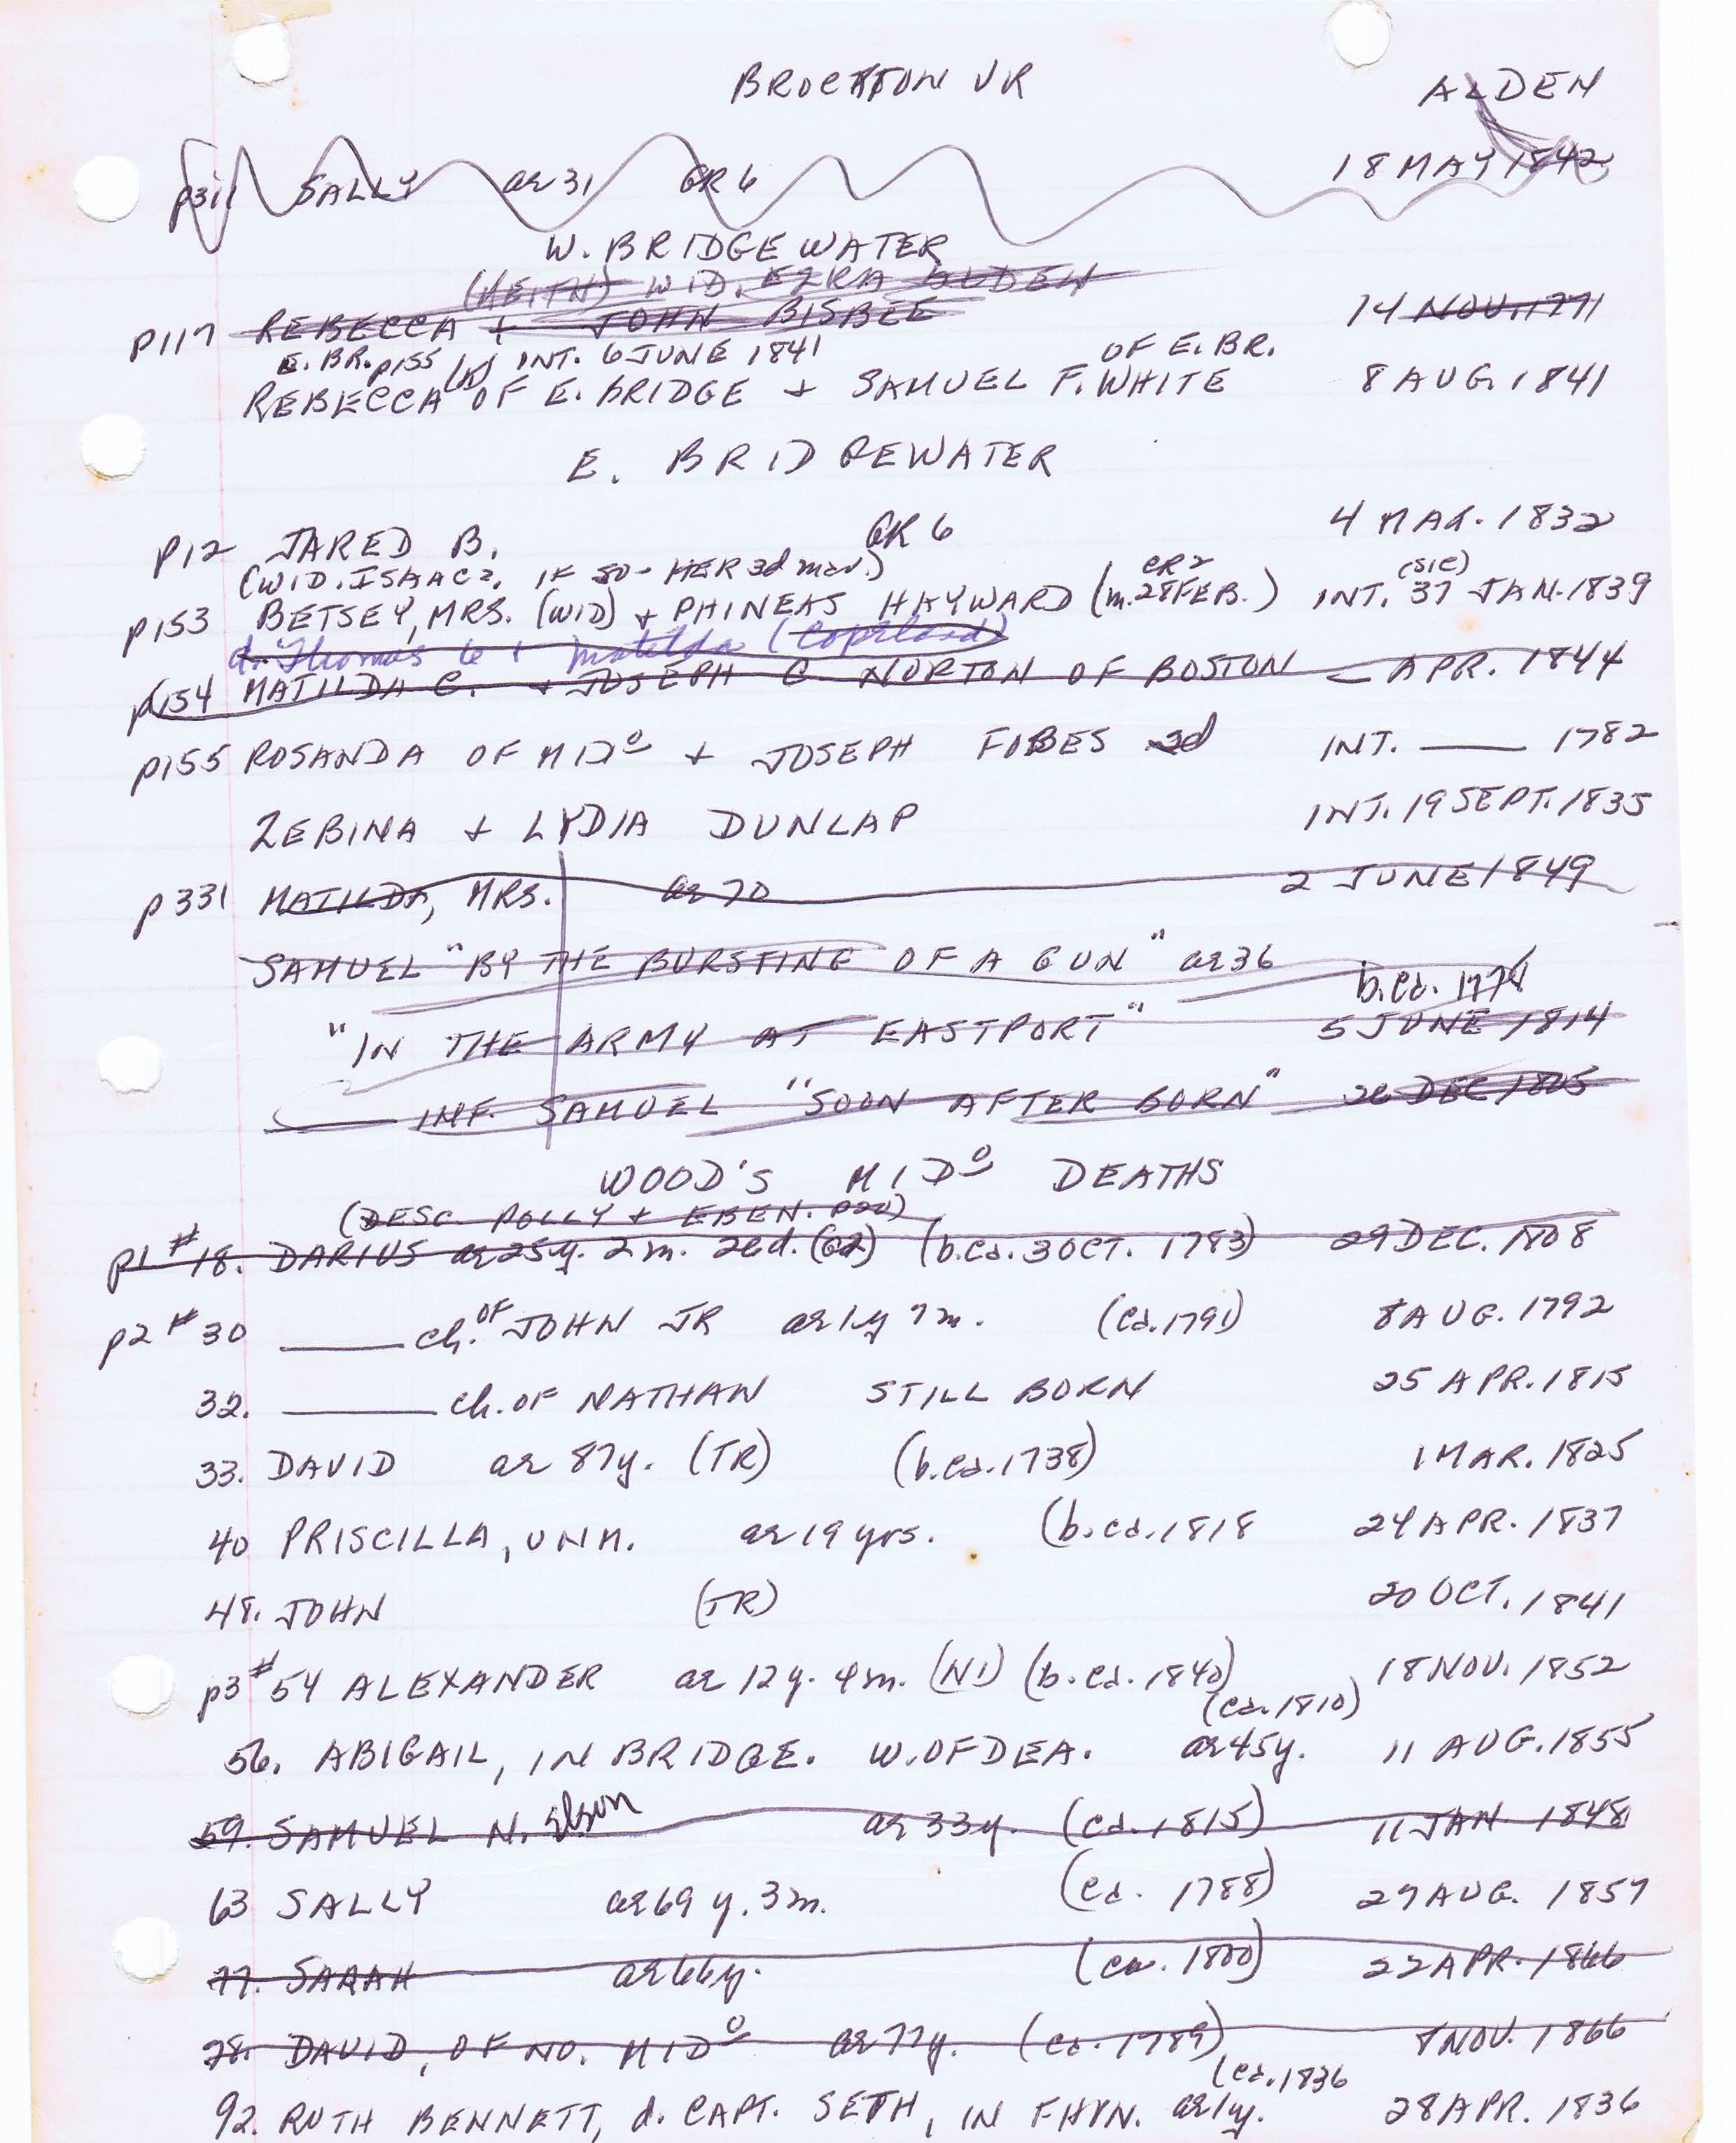 BROCKTON VR ALDEN
p311 SALLY ae 31 GR 6 18 MAY 1842
W. BRIDGEWATER
(KEITH) WID. EZRA ALDEN
p117 REBECCA + JOHN BISBEE 14 NOV. 1791
E. BR. p155 INT. 6 JUNE 1841 OF E. BR.
REBECCA OF E. BRIDGE + SAMUEL F. WHITE 8 AUG. 1841
E. BRIDGEWATER
p12 JARED B. GR 6 4 MAR. 1832
(WID. ISAAC?, IF SO - HER 3d mar.) CR 2 (SIC)
p153 BETSEY, MRS. (WID) + PHINEAS HAYWARD (m. 28 FEB.) INT. 37 JAN. 1839
d. Thomas 6 + Matilda (Copeland)
p154 MATILDA C. + JOSEPH C. NORTON OF BOSTON — APR. 1844
p155 ROSANDA OF MIDº + JOSEPH FOBES 2d INT. —— 1782
ZEBINA + LYDIA DUNLAP INT. 19 SEPT. 1835
p331 MATILDA, MRS. ae 70 2 JUNE 1849
SAMUEL "BY THE BURSTING OF A GUN" ae 36
b. ca. 1778
"IN THE ARMY AT EASTPORT" 5 JUNE 1814
—— INF. SAMUEL "SOON AFTER BORN" DEC 1805
WOOD'S MIDº DEATHS
(DESC. POLLY + EBEN. )
p1 #18. DARIUS ae 25y. 2m. 26d. (b. ca. 3 OCT. 1783) 29 DEC. 1808
p2 #30 —— ch. OF JOHN JR ae 1y 7m. (ca. 1791) 8 AUG. 1792
32. —— ch. OF NATHAN STILL BORN 25 APR. 1815
33. DAVID ae 87y. (TR) (b. ca. 1738) 1 MAR. 1825
40 PRISCILLA, UNM. ae 19 yrs. (b. ca. 1818 24 APR. 1837
48. JOHN (TR) 20 OCT. 1841
p3 #54 ALEXANDER ae 12y. 4m. (NI) (b. ca. 1840) 18 NOV. 1852
(ca. 1810)
56. ABIGAIL, IN BRIDGE. W. OF DEA. ae 45y. 11 AUG. 1855
59. SAMUEL N. ae 33y. (ca. 1815) 11 JAN 1848
63 SALLY ae 69 y. 3m. (ca. 1788) 27 AUG. 1857
77. SARAH ae 66y. (ca. 1800) 22 APR. 1866
78. DAVID, OF NO. MIDº ae 77y. (ca. 1789) 8 NOV. 1866
(ca. 1836
92. RUTH BENNETT, d. CAPT. SETH, IN FHVN. ae 1y. 28 APR. 1836